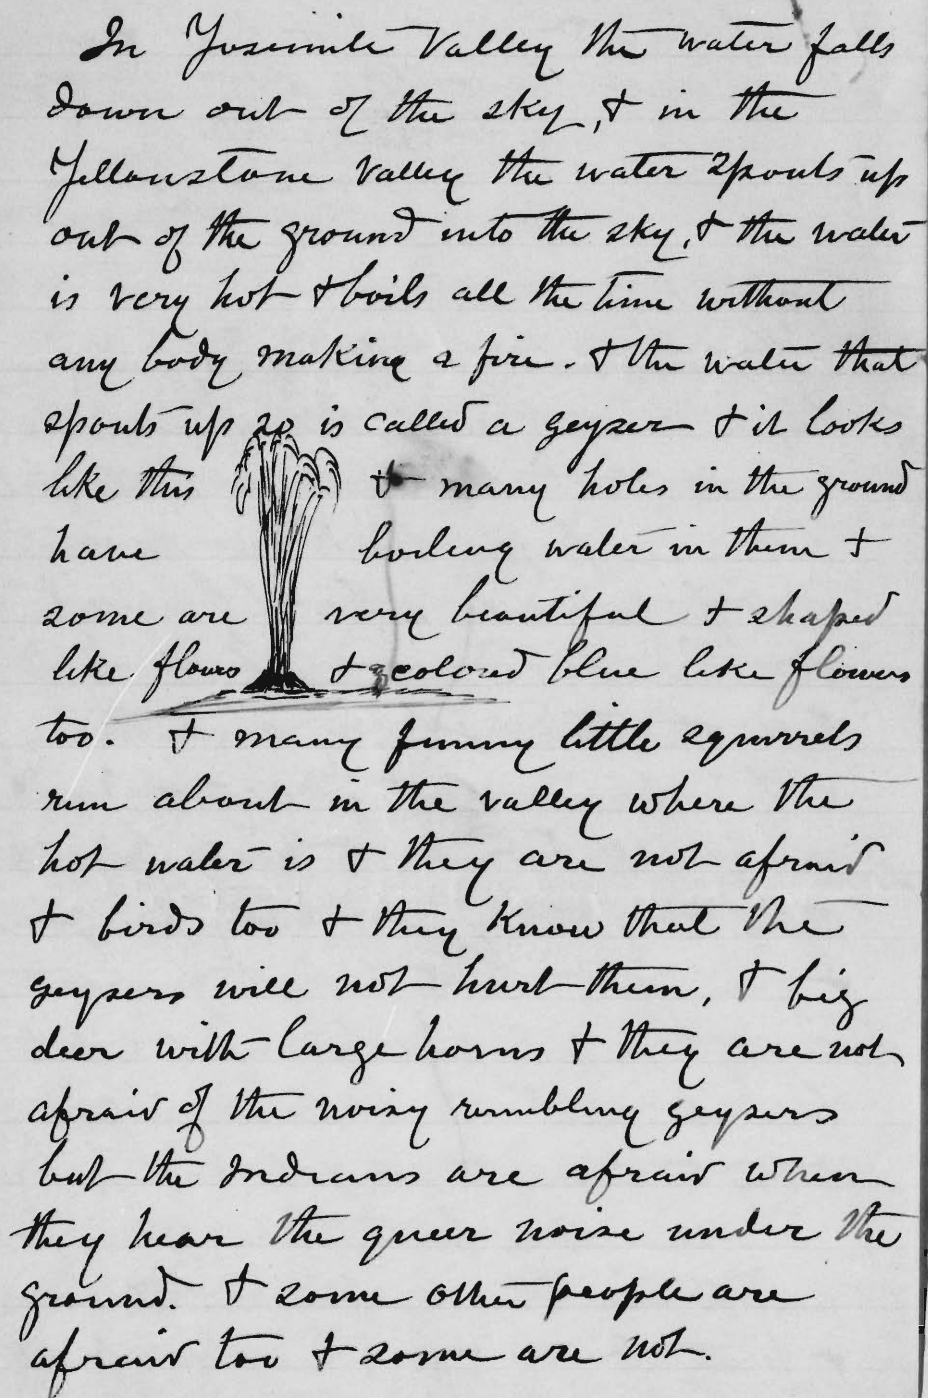 In Yosemite Valley the water falls
down out of the sky, & in the
Yellowstone Valley the water spouts up
out of the ground into the sky, & the water
is very hot & boils all the time without
any body making a fire. & the water that
spouts up so is called a geyser & it looks
like this & many holes in the ground
have boiling water in them &
some are very beautiful & shaped
like flows & colored blue like flowers
too. & many funny little squirrels
run about in the valley where the
hot water is & they are not afraid
& birds too & they know that the
geysers will not hurt them, & big
deer with large horns & they are not
afraid of the noisy rumbling geysers
but the Indians are afraid when
they hear the queer noise under the
ground. & some other people are
afraid too & some are not.